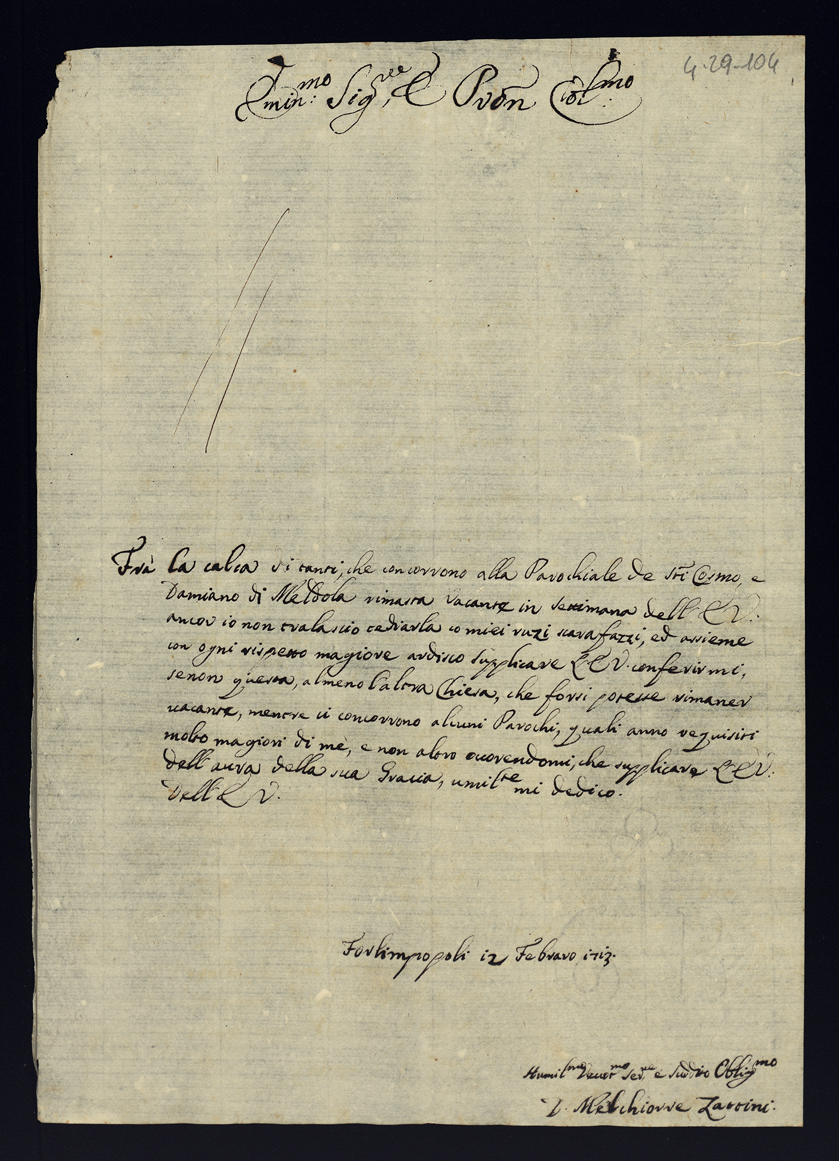 4-29-104
Emin:mo Sigre, e Pron Col:mo
Frà la calca di tanti, che concorrono alla Parochiale de Sti Cosmo, e
Damiano di Meldola rimasta vacante in settimana dell'E.V.
ancor io non tralascio tediarla co miei rozi scarafazzi, ed assieme
con ogni rispetto magiore ardisco supplicare L'E.V. conferirmi,
se non questa, almeno l'altra Chiesa, che forsi potesse rimaner
vacante, mentre ci concorrono alcuni Parochi, quali anno requisiti
molto magiori di mè, e non altro occorendomi, che supplicare L'E.V.
dell'aura della sua Gracia, umilte mi dedico.
Dell'E.V.
Forlimpopoli 12 Febraro 1713.
Humilmo Devotmo Serre e Suddito Obbligmo
D. Melchiorre Zaccini.